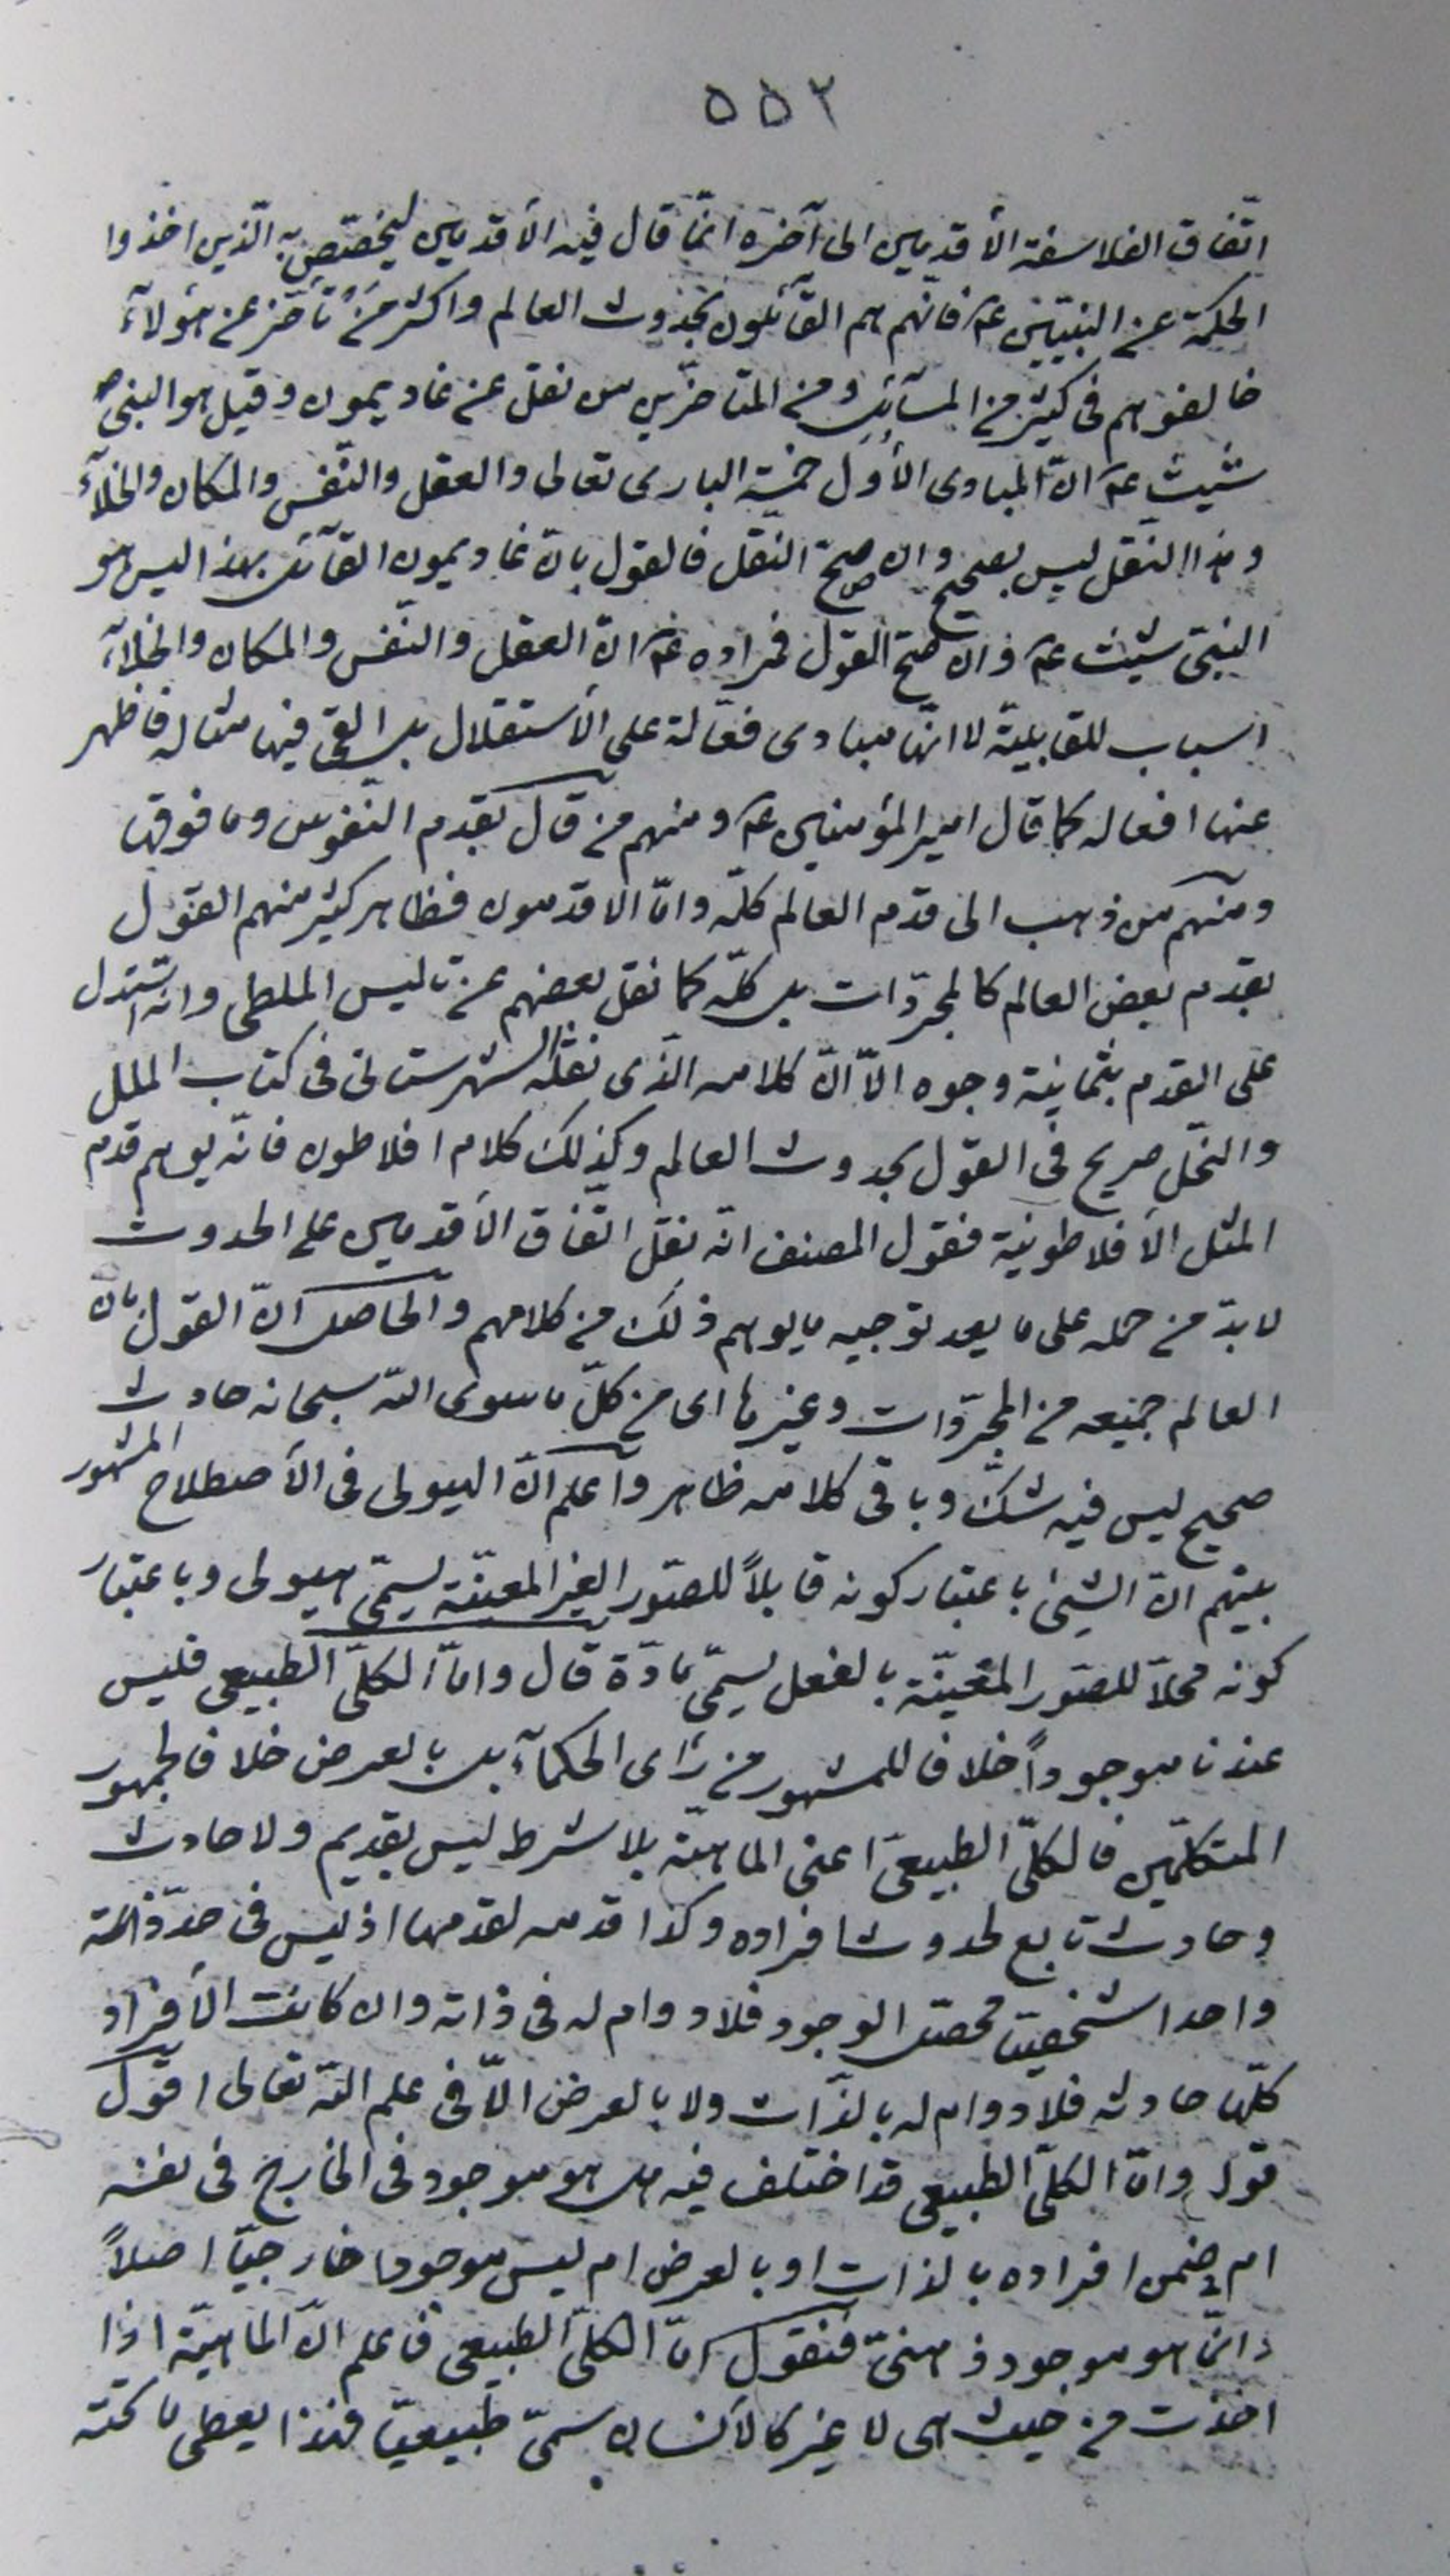 ٥٥٢
اتّفاق الفلاسفة الأقدمين الى آخره انّما قال فيه الأقدمين ليختصّ به الّذين اخذوا
الحكمة عن النبيّين عم فانّهم هم القآئلون بحدوث العالم واكثر من تأخّر عن هؤلآء
خالفوهم فى كثير من المسآئل ومن المتأخّرين من نقل عن غاديمون وقيل هو النبىّ
شيث عم انّ المبادى الأول خمسة البارى تعالى والعقل والنّفس والمكان والخلآء
وهذا النّقل ليس بصحيح وان صحّ النّقل فالقول بانّ غاديمون القآئل بهذا ليس هو
النبىّ شيث عم وان صحّ القول فمراده عم انّ العقل والنّفس والمكان والخلآء
اسباب للقابليّة لا انّها مبادى فعّالة على الأستقلال بل القى فيها مثاله فاظهر
عنها افعاله كما قال اميرالمؤمنين عم ومنهم من قال بقدم النّفوس وما فوقها
ومنهم من ذهب الى قدم العالم كلّه وامّا الاقدمون فظاهر كثير منهم القول
بقدم بعض العالم كالمجرّدات بل كلّه كما نقل بعضهم عن ثاليس الملطى وانّه استدل
على القدم بثمانية وجوه الاّ انّ كلامه الّذى نقله الشهرستانى فى كتاب الملل
والنّحل صريح فى القول بحدوث العالم وكذلك كلام افلاطون فانّه يوهم قدم
المثل الأفلاطونيّة فقول المصنف انّه نقل اتّفاق الأقدمين على الحدوث
لا بدّ من حمله على ما بعد توجيه ما يوهم ذلك من كلامهم والحاصل انّ القول بانّ
العالم جميعه من المجرّدات وغيرها اى من كلّ ما سوى اللّه سبحانه حادث
صحيح ليس فيه شكّ وباقى كلامه ظاهر واعلم انّ الهيولى فى الأصطلاح المشهور
بينهم انّ الشىء باعتبار كونه قابلاً للصّور الغير المعيّنة يسمّى هيولى وباعتبار
كونه محلاّ للصّور المعيّنة بالفعل يسمّى مادّة قال وامّا الكلّىّ الطبيعى فليس
عندنا موجوداً خلافا للمشهور من رأى الحكمآء بل بالعرض خلافا لجمهور
المتكلّمين فالكلّىّ الطبيعىّ اعنى الماهيّة بلا شرط ليس بقديم ولا حادث
وحادث تابع لحدوث افراده وكذا قدمه لقدمها اذ ليس فى حدّ ذاته
واحدا شخصيّا محصّل الوجود فلا دوام له فى ذاته وان كانت الأفراد
كلّها حادثه فلا دوام له بالذّات ولا بالعرض الاّ فى علم اللّه تعالى اقول
قوله وامّا الكلّىّ الطبيعى قد اختلف فيه هل هو موجود فى الخارج فى نفسه
ام فى ضمن افراده بالذات او بالعرض ام ليس موجودا خارجيّا اصلاً
وانّما هو موجود ذهنىّ فنقول امّا الكلّىّ الطبيعى فاعلم انّ الماهيّة اذا
اخذت من حيث هى لا غير كالأنسان سمّى طبيعيّا فهذا يعطى ما تحته